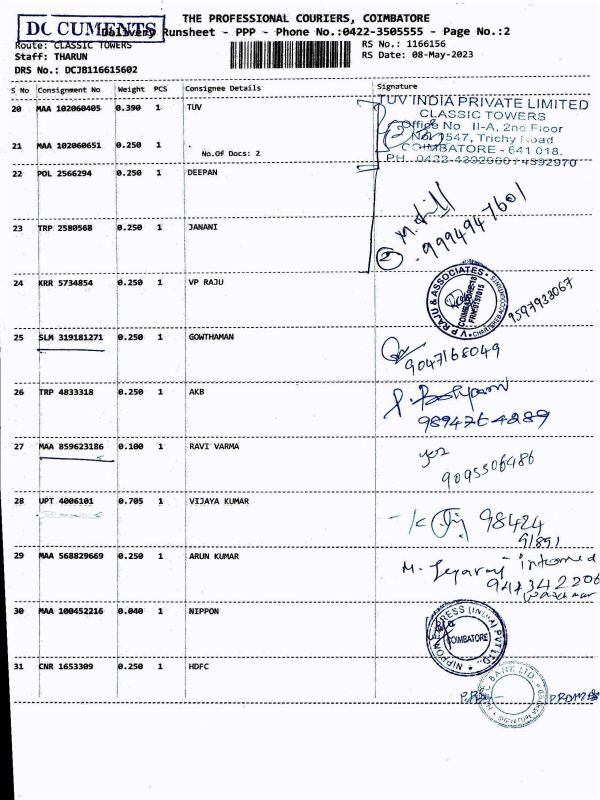 THE PROFESSIONAL COURIERS, COIMBATORE
DOCUMENTS
Delivery Runsheet - PPP - Phone No.:0422-3505555 - Page No.:2
Route: CLASSIC TOWERS
RS No.: 1166156
Staff: THARUN
RS Date: 08-May-2023
DRS No.: DCJB116615602
S No Consignment No Weight PCS Consignee Details Signature
20 MAA 102060405 0.390 1 TUV
TUV INDIA PRIVATE LIMITED
CLASSIC TOWERS
Office No II-A, 2nd Floor
No. 1547, Trichy Road
COIMBATORE - 641 018.
21 MAA 102060651 0.250 1 .
No.Of Docs: 2
22 POL 2566294 0.250 1 DEEPAN
2
9994947601
23 TRP 2580568 0.250 1 JANANI
24 KRR 5734854 0.250 1 VP RAJU
V P RAJU & ASSOCIATES
CHARTERED ACCOUNTANTS
COIMBATORE-18
9597933067
25 SLM 319181271 0.250 1 GOWTHAMAN
9047168049
26 TRP 4833318 0.250 1 AKB
9894264289
27 MAA 859623186 0.100 1 RAVI VARMA
9095506486
28 UPT 4006101 0.705 1 VIJAYA KUMAR
98424
91891
29 MAA 568829669 0.250 1 ARUN KUMAR
M. Jeyaraj
30 MAA 100452216 0.040 1 NIPPON
NIPPON EXPRESS (INDIA) PVT LTD.
COIMBATORE
31 CNR 1653309 0.250 1 HDFC
HDFC BANK LTD.